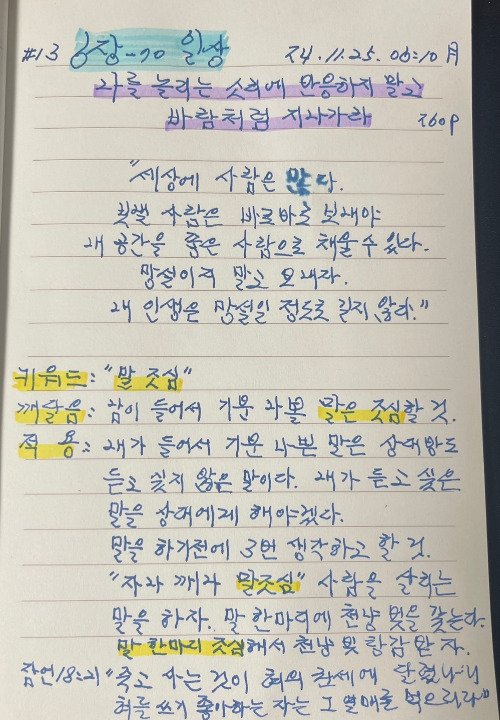 #13 긍장-70 일상 24.11.25. 06:10 月
나를 놀리는 소리에 반응하지 말고
바람처럼 지나가라 260p
"세상에 사람은 많다.
못핼 사람은 바로바로 보내야
내 공간을 좋은 사람으로 채울 수 있다.
망설이지 말고 보내자.
내 인생은 망설일 정도로 길지 않다."
키워드: "말 조심"
깨달음: 남이 들어서 기분 나쁠 말은 조심할 것.
적 용: 내가 들어서 기분 나쁜 말은 상대방도
듣고 싶지 않은 말이다. 내가 듣고 싶은
말을 상대에게 해야겠다.
말을 하기전에 3번 생각하고 할 것.
"자나 깨나 말조심" 사람을 살리는
말을 하자. 말 한마디에 천냥 빚을 갚는다.
말 한마디 조심해서 천냥 빚 탕감 받자.
잠언18:21 "죽고 사는 것이 혀의 권세에 달렸나니
혀를 쓰기 좋아하는 자는 그 열매를 먹으리라"